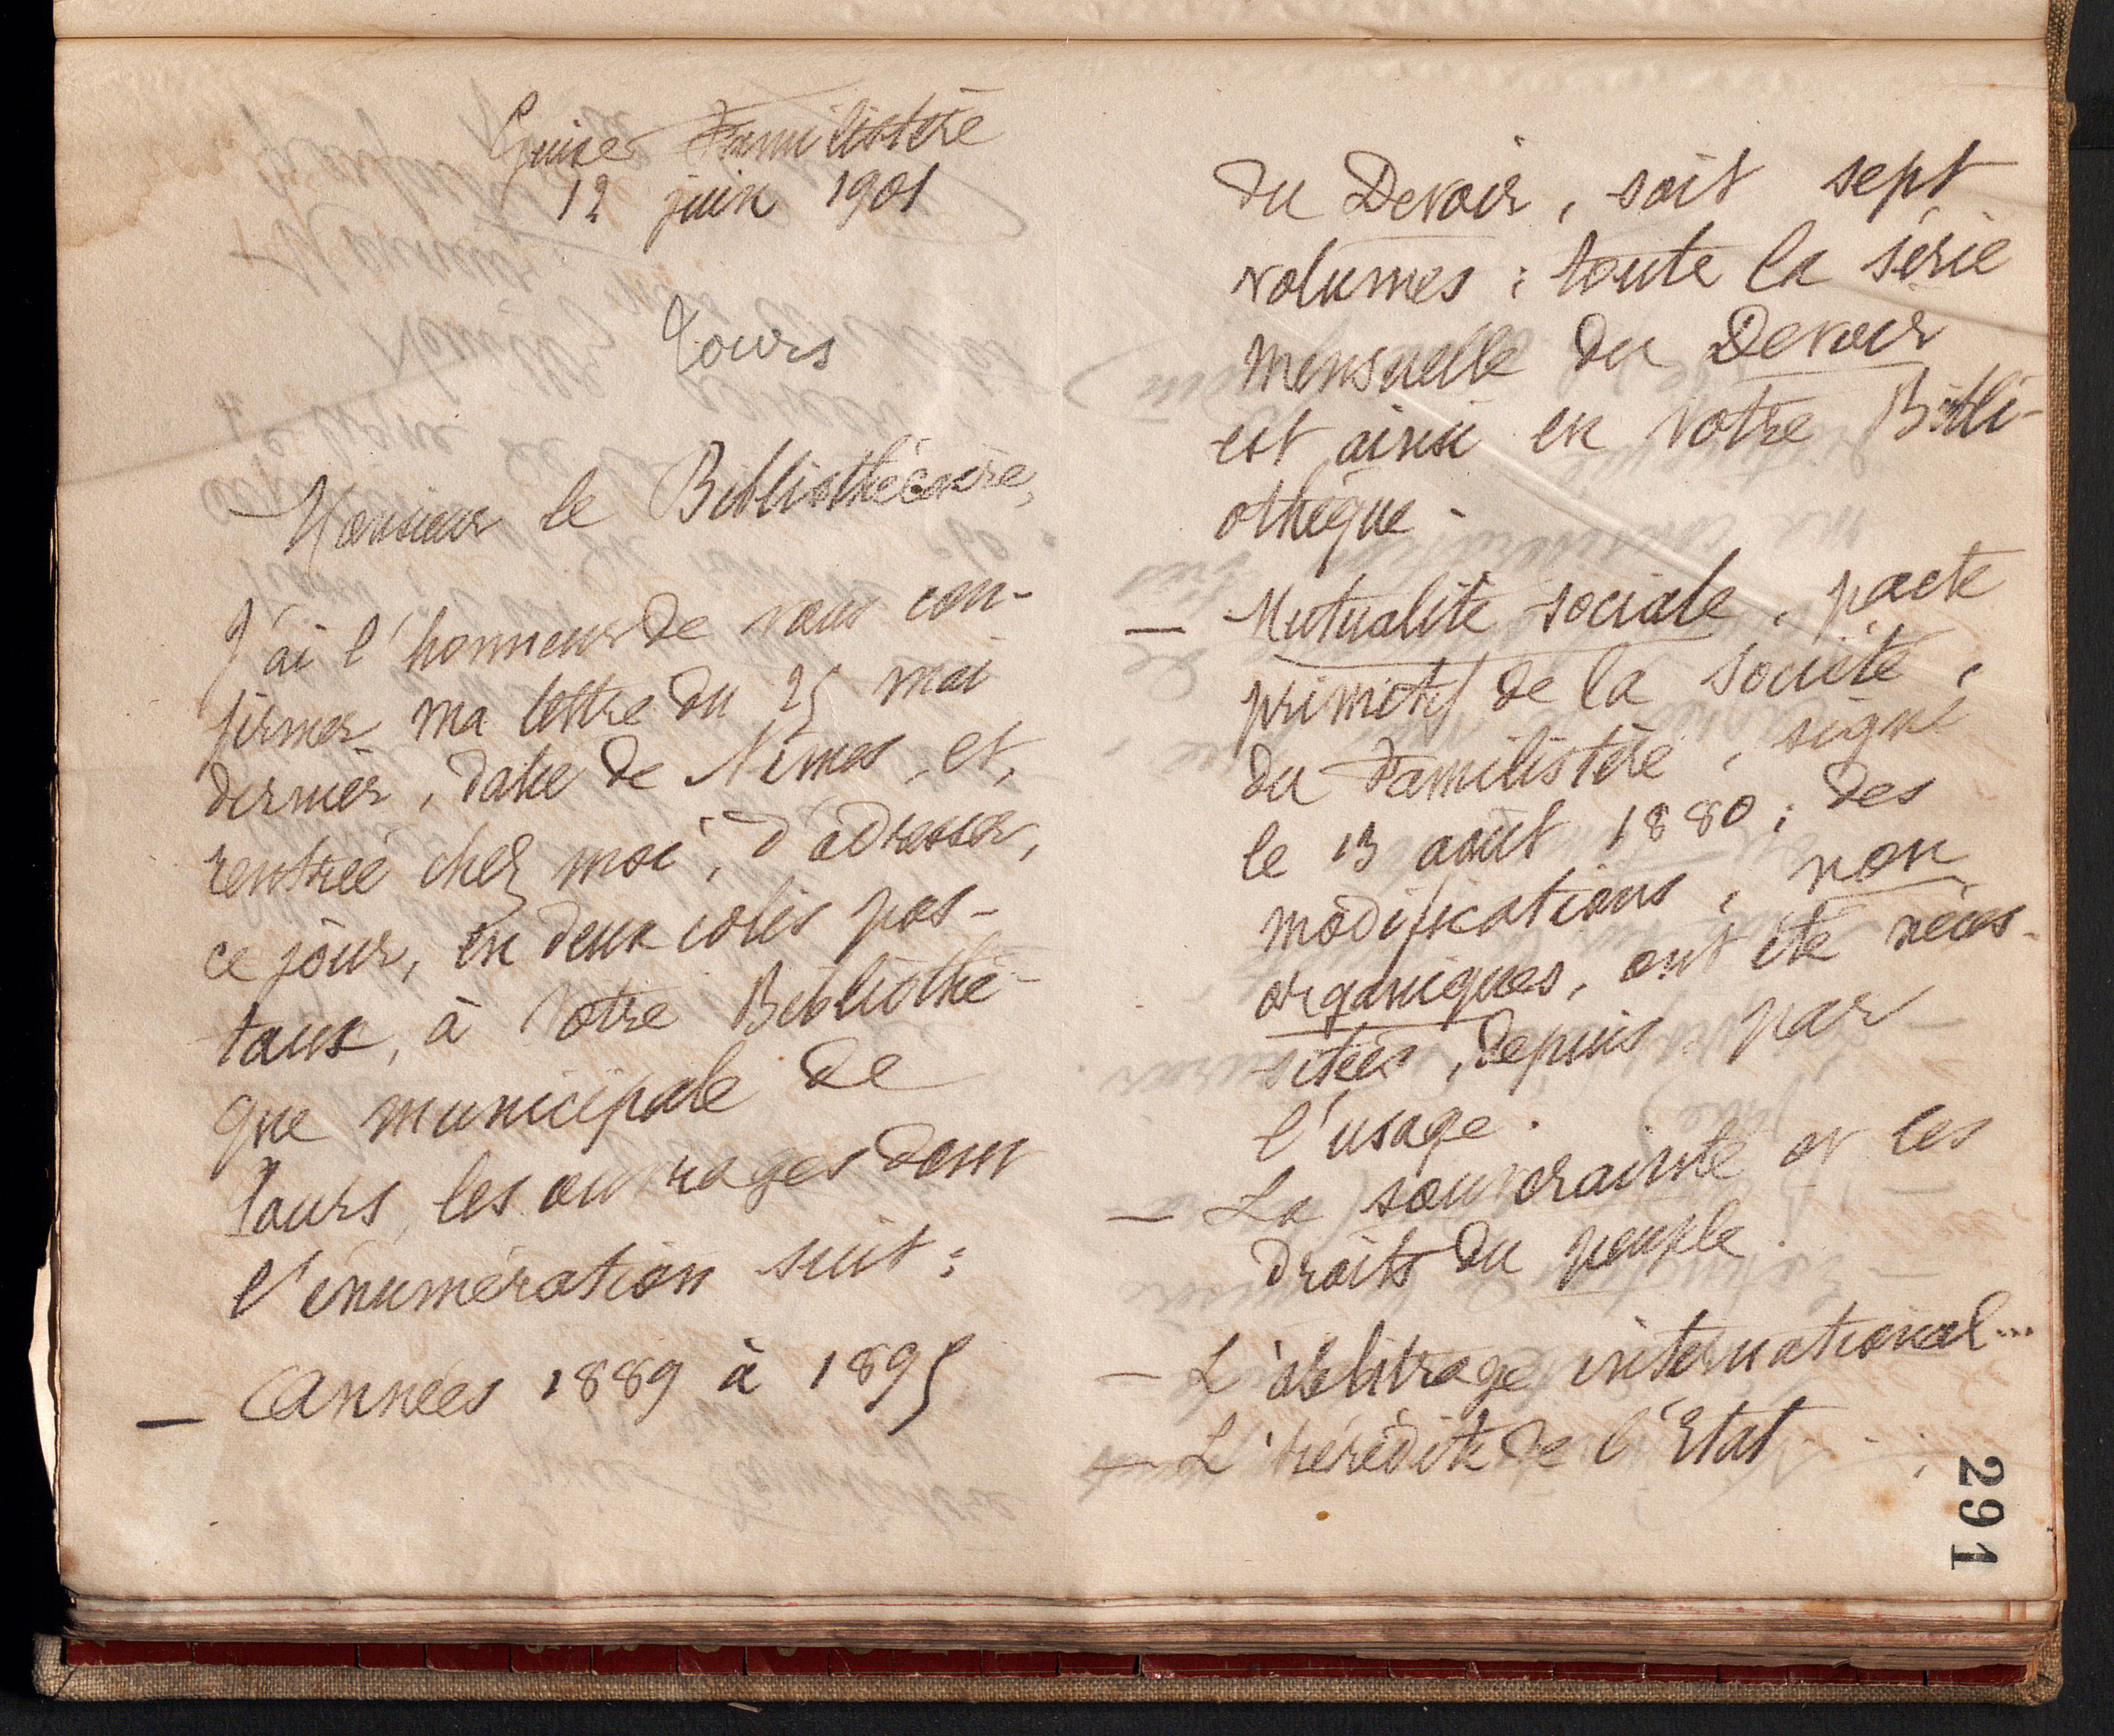 Guise Familistère
12 juin 1901
Tours
Monsieur le Bibliothécaire,
J'ai l'honneur de vous con-
firmer ma lettre du 25 mai
dernier, datée de Nîmes, et,
rentrée chez moi, d'adresser,
ce jour, en deux colis pos-
taux, à votre Bibliothè-
que municipale de
Tours, les ouvrages dont
l'énumération suit :
— Années 1889 à 1895
du Devoir, soit sept
volumes ; toute la série
mensuelle du Devoir
est ainsi en votre Bibli-
othèque.
— Mutualité sociale, pacte
primitif de la Société,
du Familistère, signé
le 13 août 1880 ; des
modifications, non
organiques, ont été néces-
sitées, depuis par
l'usage.
— La souveraineté et les
droits du peuple.
— L'arbitrage international...
— L'hérédité de l'Etat
291